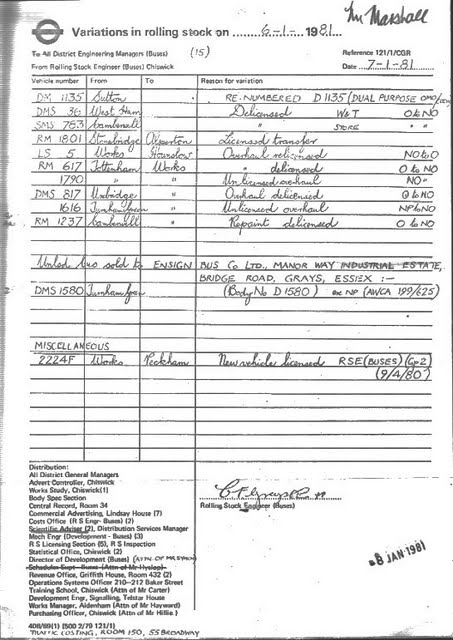 Mr Marshall
Variations in rolling stock on 6-1-1981
To All District Engineering Managers (Buses) (15) Reference 121/1/CGR
From Rolling Stock Engineer (Buses) Chiswick Date 7-1-81
Vehicle number From To Reason for variation
DM 1135 Sutton RE-NUMBERED D 1135 (DUAL PURPOSE OMO/
DMS 36 West Ham Delicensed W&T O to NO
SMS 763 Camberwell " STORE " "
RM 1801 Stonebridge Alperton Licensed transfer
LS 5 Works Hounslow Overhaul relicensed NO to O
RM 617 Tottenham Works " delicensed O to NO
1790 " " Unlicensed overhaul NO "
DMS 817 Uxbridge " Overhaul delicensed O to NO
1616 Turnham Green " Unlicensed overhaul NP to NO
RM 1237 Camberwell " Repaint delicensed O to NO
Unlicd bus sold to ENSIGN BUS Co LTD., MANOR WAY INDUSTRIAL ESTATE,
BRIDGE ROAD, GRAYS, ESSEX :-
DMS 1580 Turnham Green (Body No D 1580) ex NP (AWCA 199/625)
MISCELLANEOUS
2224F Works Peckham New vehicle licensed RSE (BUSES) (Gp 2)
(9/4/80)
Distribution:
All District General Managers
Advert Controller, Chiswick
Works Study, Chiswick (1)
Body Spec Section
Central Record, Room 34
Commercial Advertising, Lindsay House (7)
Costs Office (R S Engr- Buses) (2)
Scientific Adviser (2), Distribution Services Manager
Mech Engr (Development - Buses) (3)
R S Licensing Section (5), R S Inspection
Statistical Office, Chiswick (2)
Director of Development (Buses) (ATTN OF
Schedules Supt - Buses (Attn of Mr Hyslop)
Revenue Office, Griffith House, Room 432 (2)
Operations Systems Officer 210-212 Baker Street
Training School, Chiswick (Attn of Mr Carter)
Development Engr, Signalling, Telstar House
Works Manager, Aldenham (Attn of Mr Hayward)
Purchasing Officer, Chiswick (Attn of Mr Hillie )
Rolling Stock Engineer (Buses)
8 JAN 1981
408/69(1) (500 2/79 121/1)
TRAFFIC COSTING, ROOM 150, 55 BROADWAY